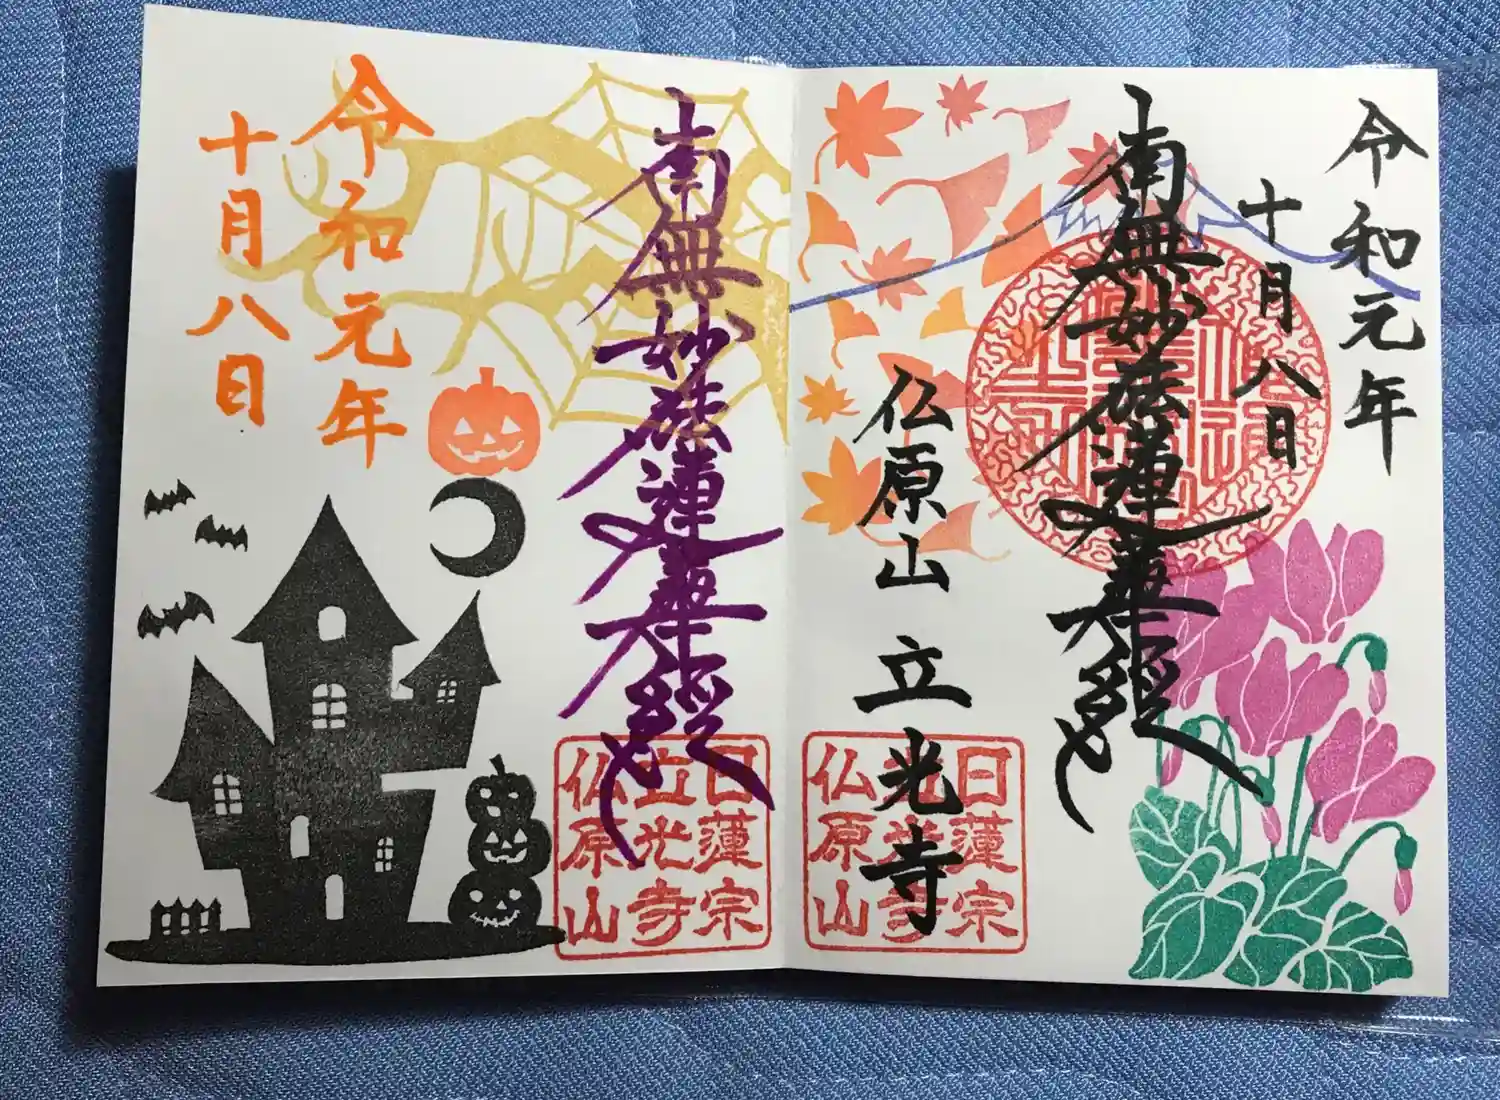 令和元年
十月八日
南無妙法蓮華経
仏原山 立光寺
日蓮宗
立光寺
仏原山
南無妙法蓮華経
令和元年
十月八日
日蓮宗
立光寺
仏原山